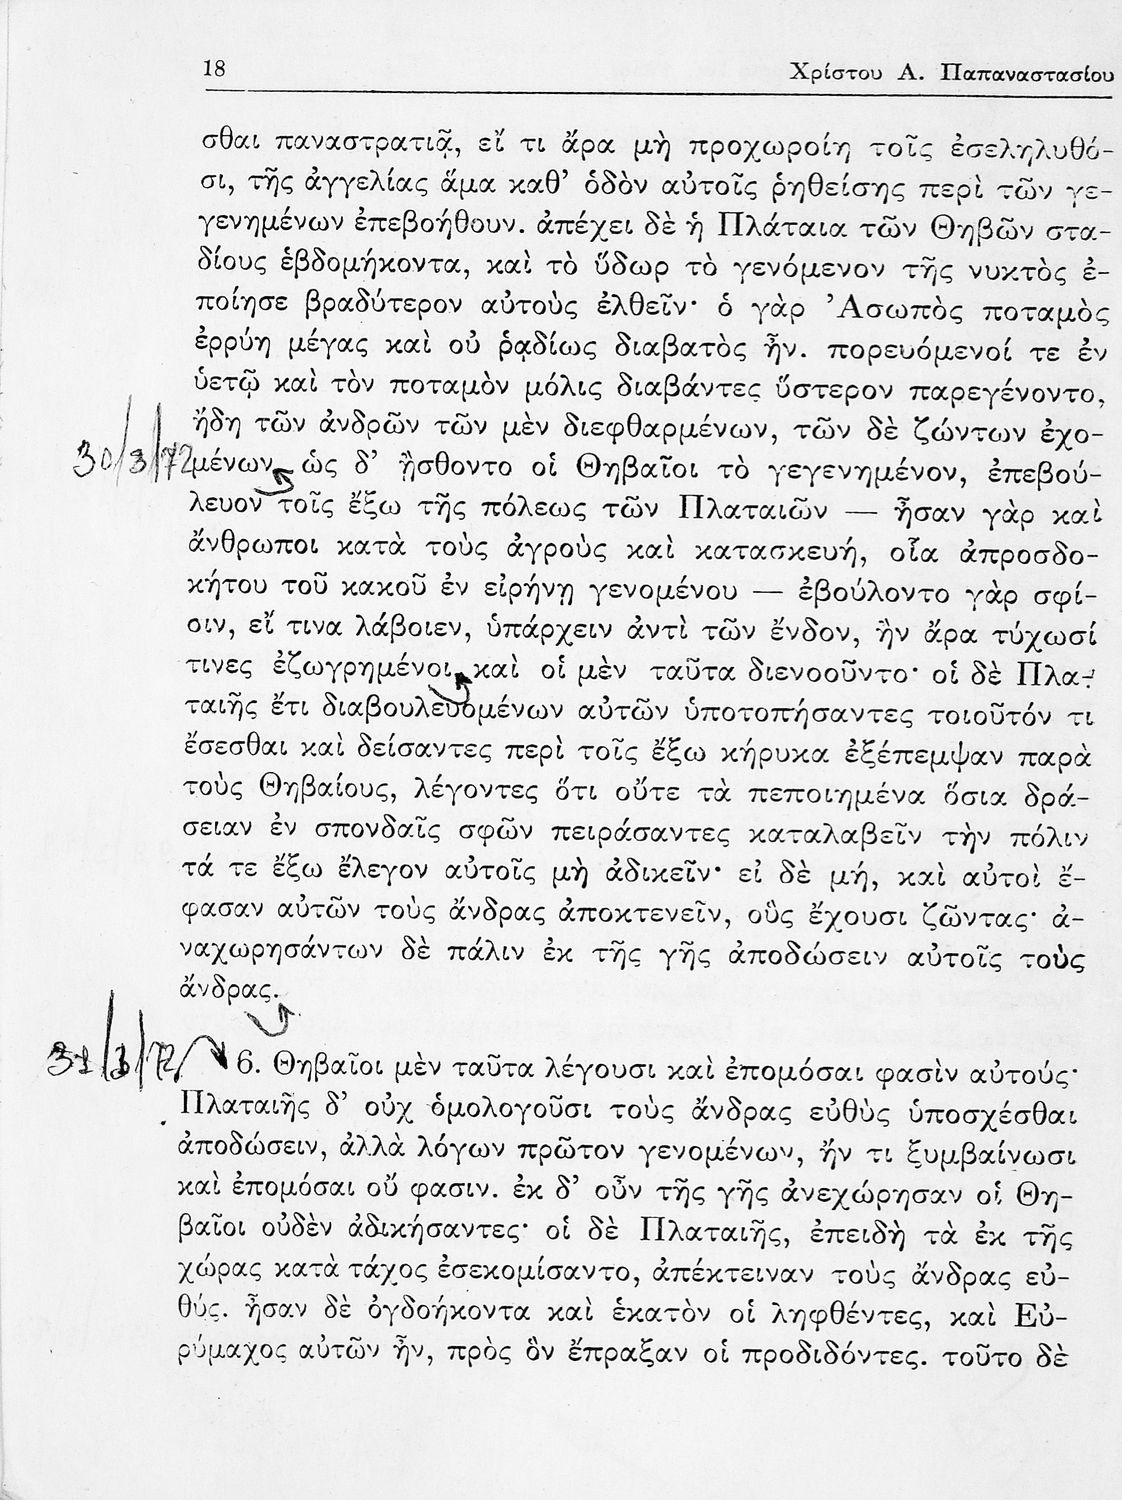 18
Χρίστου Α. Παπαναστασίου
σθαι παναστρατιᾷ, εἴ τι ἄρα μὴ προχωροίη τοῖς ἐσεληλυθό-
σι, τῆς ἀγγελίας ἅμα καθ’ ὁδὸν αὐτοῖς ῥηθείσης περὶ τῶν γε-
γενημένων ἐπεβοήθουν. ἀπέχει δὲ ἡ Πλάταια τῶν Θηβῶν στα-
δίους ἑβδομήκοντα, καὶ τὸ ὕδωρ τὸ γενόμενον τῆς νυκτὸς ἐ-
ποίησε βραδύτερον αὐτοὺς ἐλθεῖν· ὁ γὰρ ’Ασωπὸς ποταμὸς
ἐρρύη μέγας καὶ οὐ ῥᾳδίως διαβατὸς ἦν. πορευόμενοί τε ἐν
ὑετῷ καὶ τὸν ποταμὸν μόλις διαβάντες ὕστερον παρεγένοντο,
ἤδη τῶν ἀνδρῶν τῶν μὲν διεφθαρμένων, τῶν δὲ ζώντων ἐχο-
30/3/72
μένων. ὡς δ’ ᾔσθοντο οἱ Θηβαῖοι τὸ γεγενημένον, ἐπεβού-
λευον τοῖς ἔξω τῆς πόλεως τῶν Πλαταιῶν — ἦσαν γὰρ καὶ
ἄνθρωποι κατὰ τοὺς ἀγροὺς καὶ κατασκευή, οἷα ἀπροσδο-
κήτου τοῦ κακοῦ ἐν εἰρήνῃ γενομένου — ἐβούλοντο γὰρ σφί-
σιν, εἴ τινα λάβοιεν, ὑπάρχειν ἀντὶ τῶν ἔνδον, ἢν ἄρα τύχωσί
τινες ἐζωγρημένοι. καὶ οἱ μὲν ταῦτα διενοοῦντο· οἱ δὲ Πλα-
ταιῆς ἔτι διαβουλευομένων αὐτῶν ὑποτοπήσαντες τοιοῦτόν τι
ἔσεσθαι καὶ δείσαντες περὶ τοῖς ἔξω κήρυκα ἐξέπεμψαν παρὰ
τοὺς Θηβαίους, λέγοντες ὅτι οὔτε τὰ πεποιημένα ὅσια δρά-
σειαν ἐν σπονδαῖς σφῶν πειράσαντες καταλαβεῖν τὴν πόλιν
τά τε ἔξω ἔλεγον αὐτοῖς μὴ ἀδικεῖν· εἰ δὲ μή, καὶ αὐτοὶ ἔ-
φασαν αὐτῶν τοὺς ἄνδρας ἀποκτενεῖν, οὓς ἔχουσι ζῶντας· ἀ-
ναχωρησάντων δὲ πάλιν ἐκ τῆς γῆς ἀποδώσειν αὐτοῖς τοὺς
ἄνδρας.
31/3/72
6. Θηβαῖοι μὲν ταῦτα λέγουσι καὶ ἐπομόσαι φασὶν αὐτούς·
Πλαταιῆς δ’ οὐχ ὁμολογοῦσι τοὺς ἄνδρας εὐθὺς ὑποσχέσθαι
ἀποδώσειν, ἀλλὰ λόγων πρῶτον γενομένων, ἤν τι ξυμβαίνωσι
καὶ ἐπομόσαι οὔ φασιν. ἐκ δ’ οὖν τῆς γῆς ἀνεχώρησαν οἱ Θη-
βαῖοι οὐδὲν ἀδικήσαντες· οἱ δὲ Πλαταιῆς, ἐπειδὴ τὰ ἐκ τῆς
χώρας κατὰ τάχος ἐσεκομίσαντο, ἀπέκτειναν τοὺς ἄνδρας εὐ-
θύς. ἦσαν δὲ ὀγδοήκοντα καὶ ἑκατὸν οἱ ληφθέντες, καὶ Εὐ-
ρύμαχος αὐτῶν ἦν, πρὸς ὃν ἔπραξαν οἱ προδιδόντες. τοῦτο δὲ